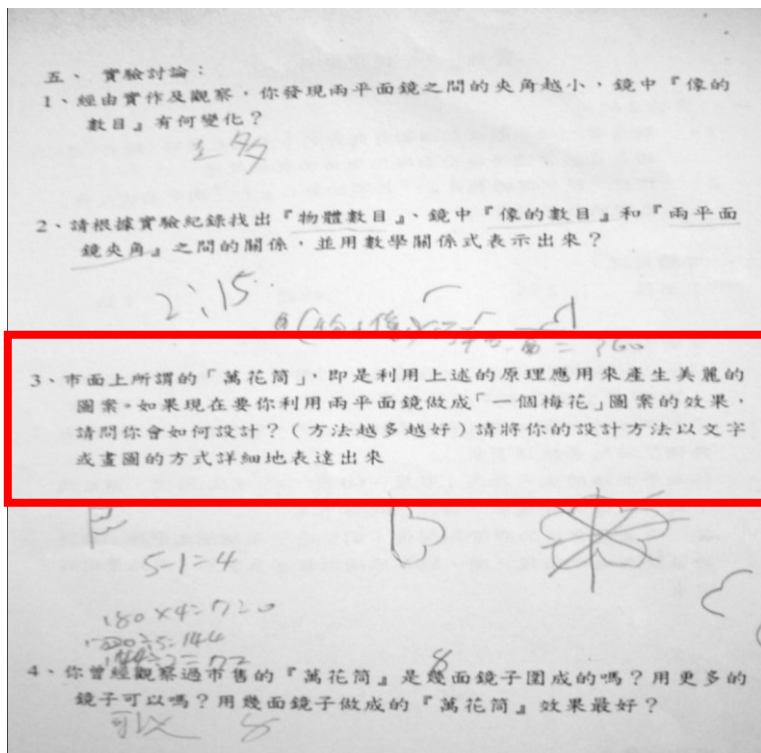 五、實驗討論：
1、經由實作及觀察，你發現兩平面鏡之間的夾角越小，鏡中『像的
數目』有何變化？
多
2、請根據實驗紀錄找出『物體數目』、鏡中『像的數目』和『兩平面
鏡夾角』之間的關係，並用數學關係式表示出來？
2:15
360
3、市面上所謂的「萬花筒」，即是利用上述的原理應用來產生美麗的
圖案。如果現在要你利用兩平面鏡做成「一個梅花」圖案的效果，
請問你會如何設計？（方法越多越好）請將你的設計方法以文字
或畫圖的方式詳細地表達出來
5-1=4
180×4=720
720÷5=144
8
4、你曾經觀察過市售的『萬花筒』是幾面鏡子圍成的嗎？用更多的
鏡子可以嗎？用幾面鏡子做成的『萬花筒』效果最好？
可以 8